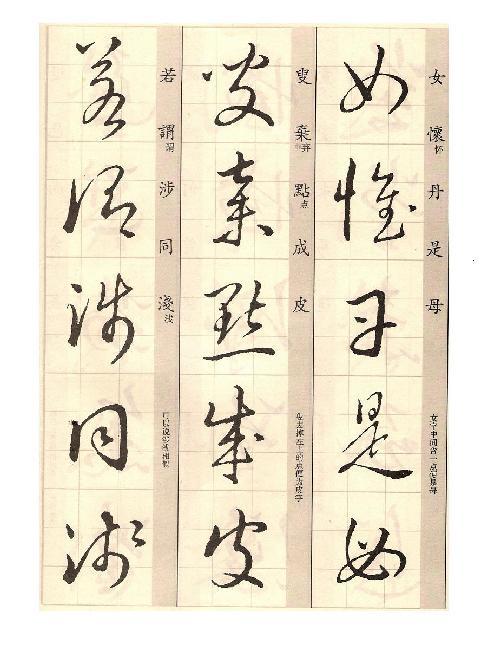 女懷怀丹是母
女懷丹是母
叟棄弃點点成皮
叟棄點成皮
若謂谓涉同淺浅
若謂涉同淺